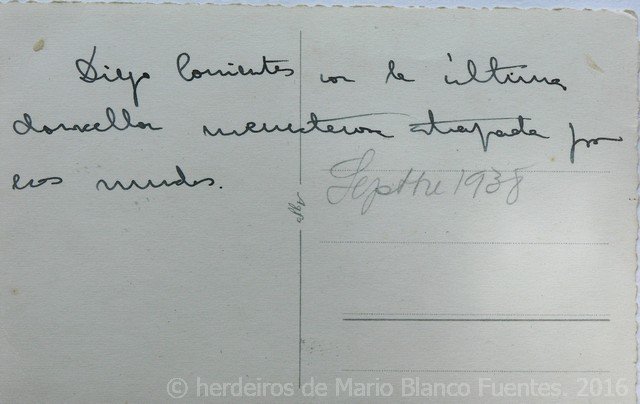 Diego Corrientes con la última
doncella menesterosa atrapada por
esos mundos.
Septbre 1938
© herdeiros de Mario Blanco Fuentes. 2016